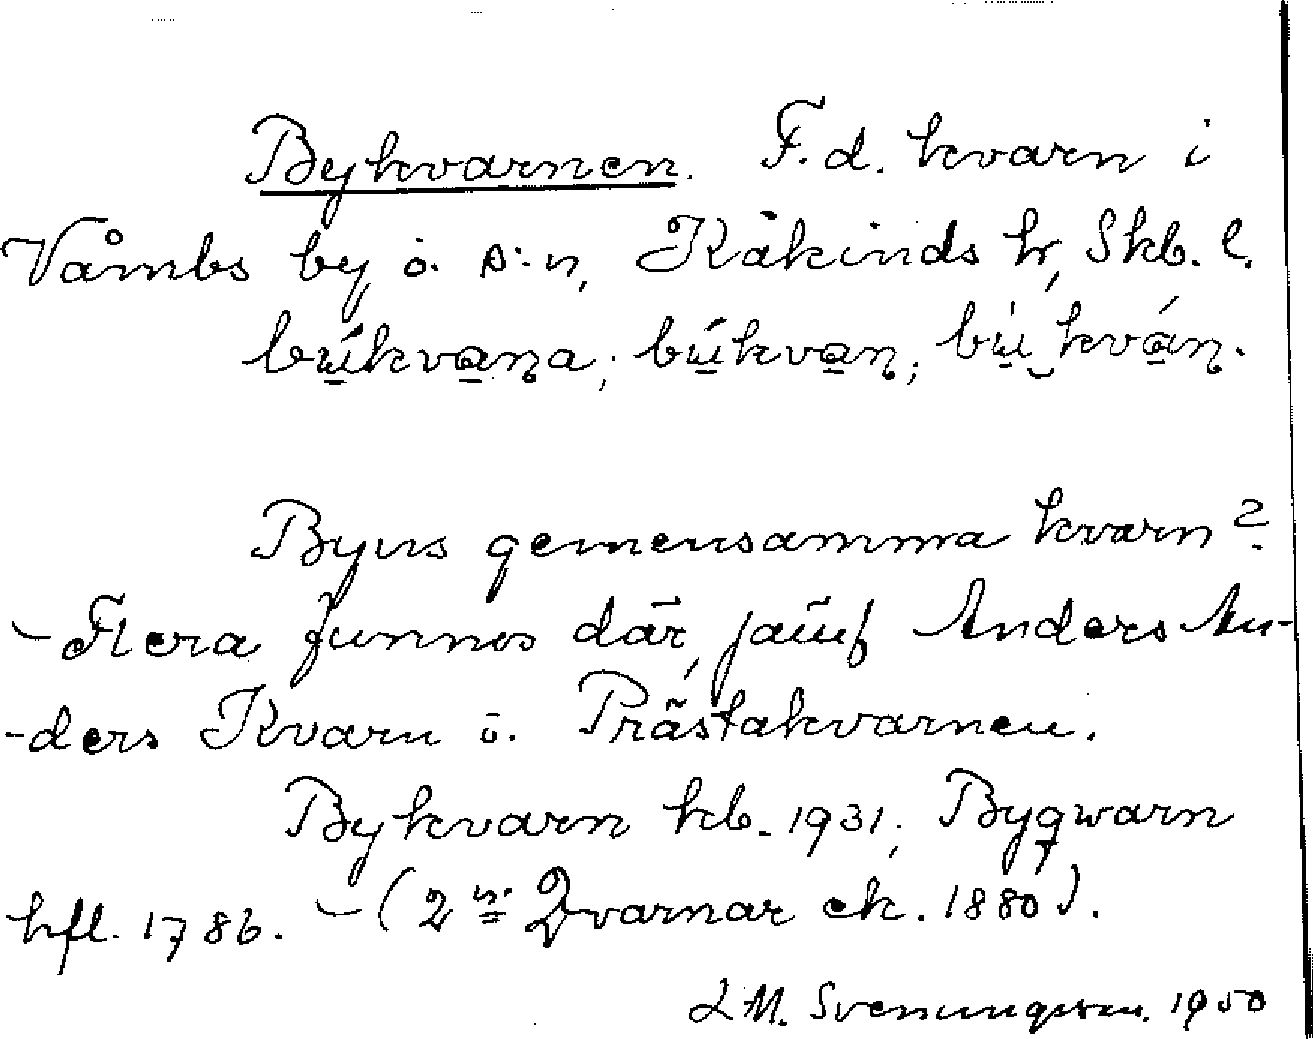 Bykvarnen. F.d. kvarn i
Våmbs by o. s:n, Kåkinds hr, Skb. l.
bų́kvana; bų́kvan; bų̀ kván.
Byns gemensamma kvarn?
- Flera funnos där, jämf Anders An-
-ders Kvarn o. Prästakvarnen.
Bykvarn kb. 1931; Byqwarn
hfl. 1786. - (2 n: Qvarnar ek. 1880).
L M. Svenungsson. 1950